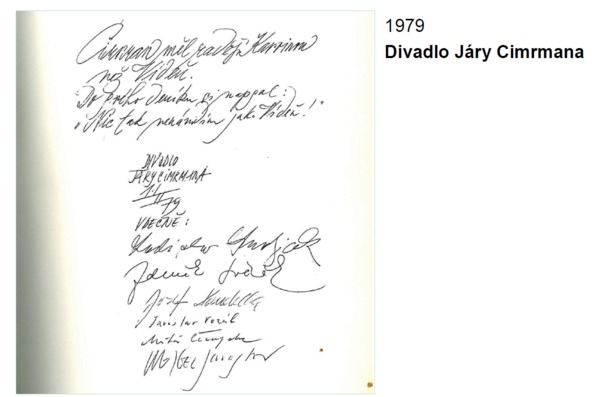 Cimrman měl raději
než Vídeň.
Do svého deníku si napsal:
"Nic tak nenávidím jako Vídeň!"
DIVADLO
JÁRY CIMRMANA
79
VDĚČNĚ:
Ladislav Smoljak
Zdeněk Svěrák
Josef Koudelka
Jaroslav Vozáb
Miloň Čepelka
1979
Divadlo Járy Cimrmana